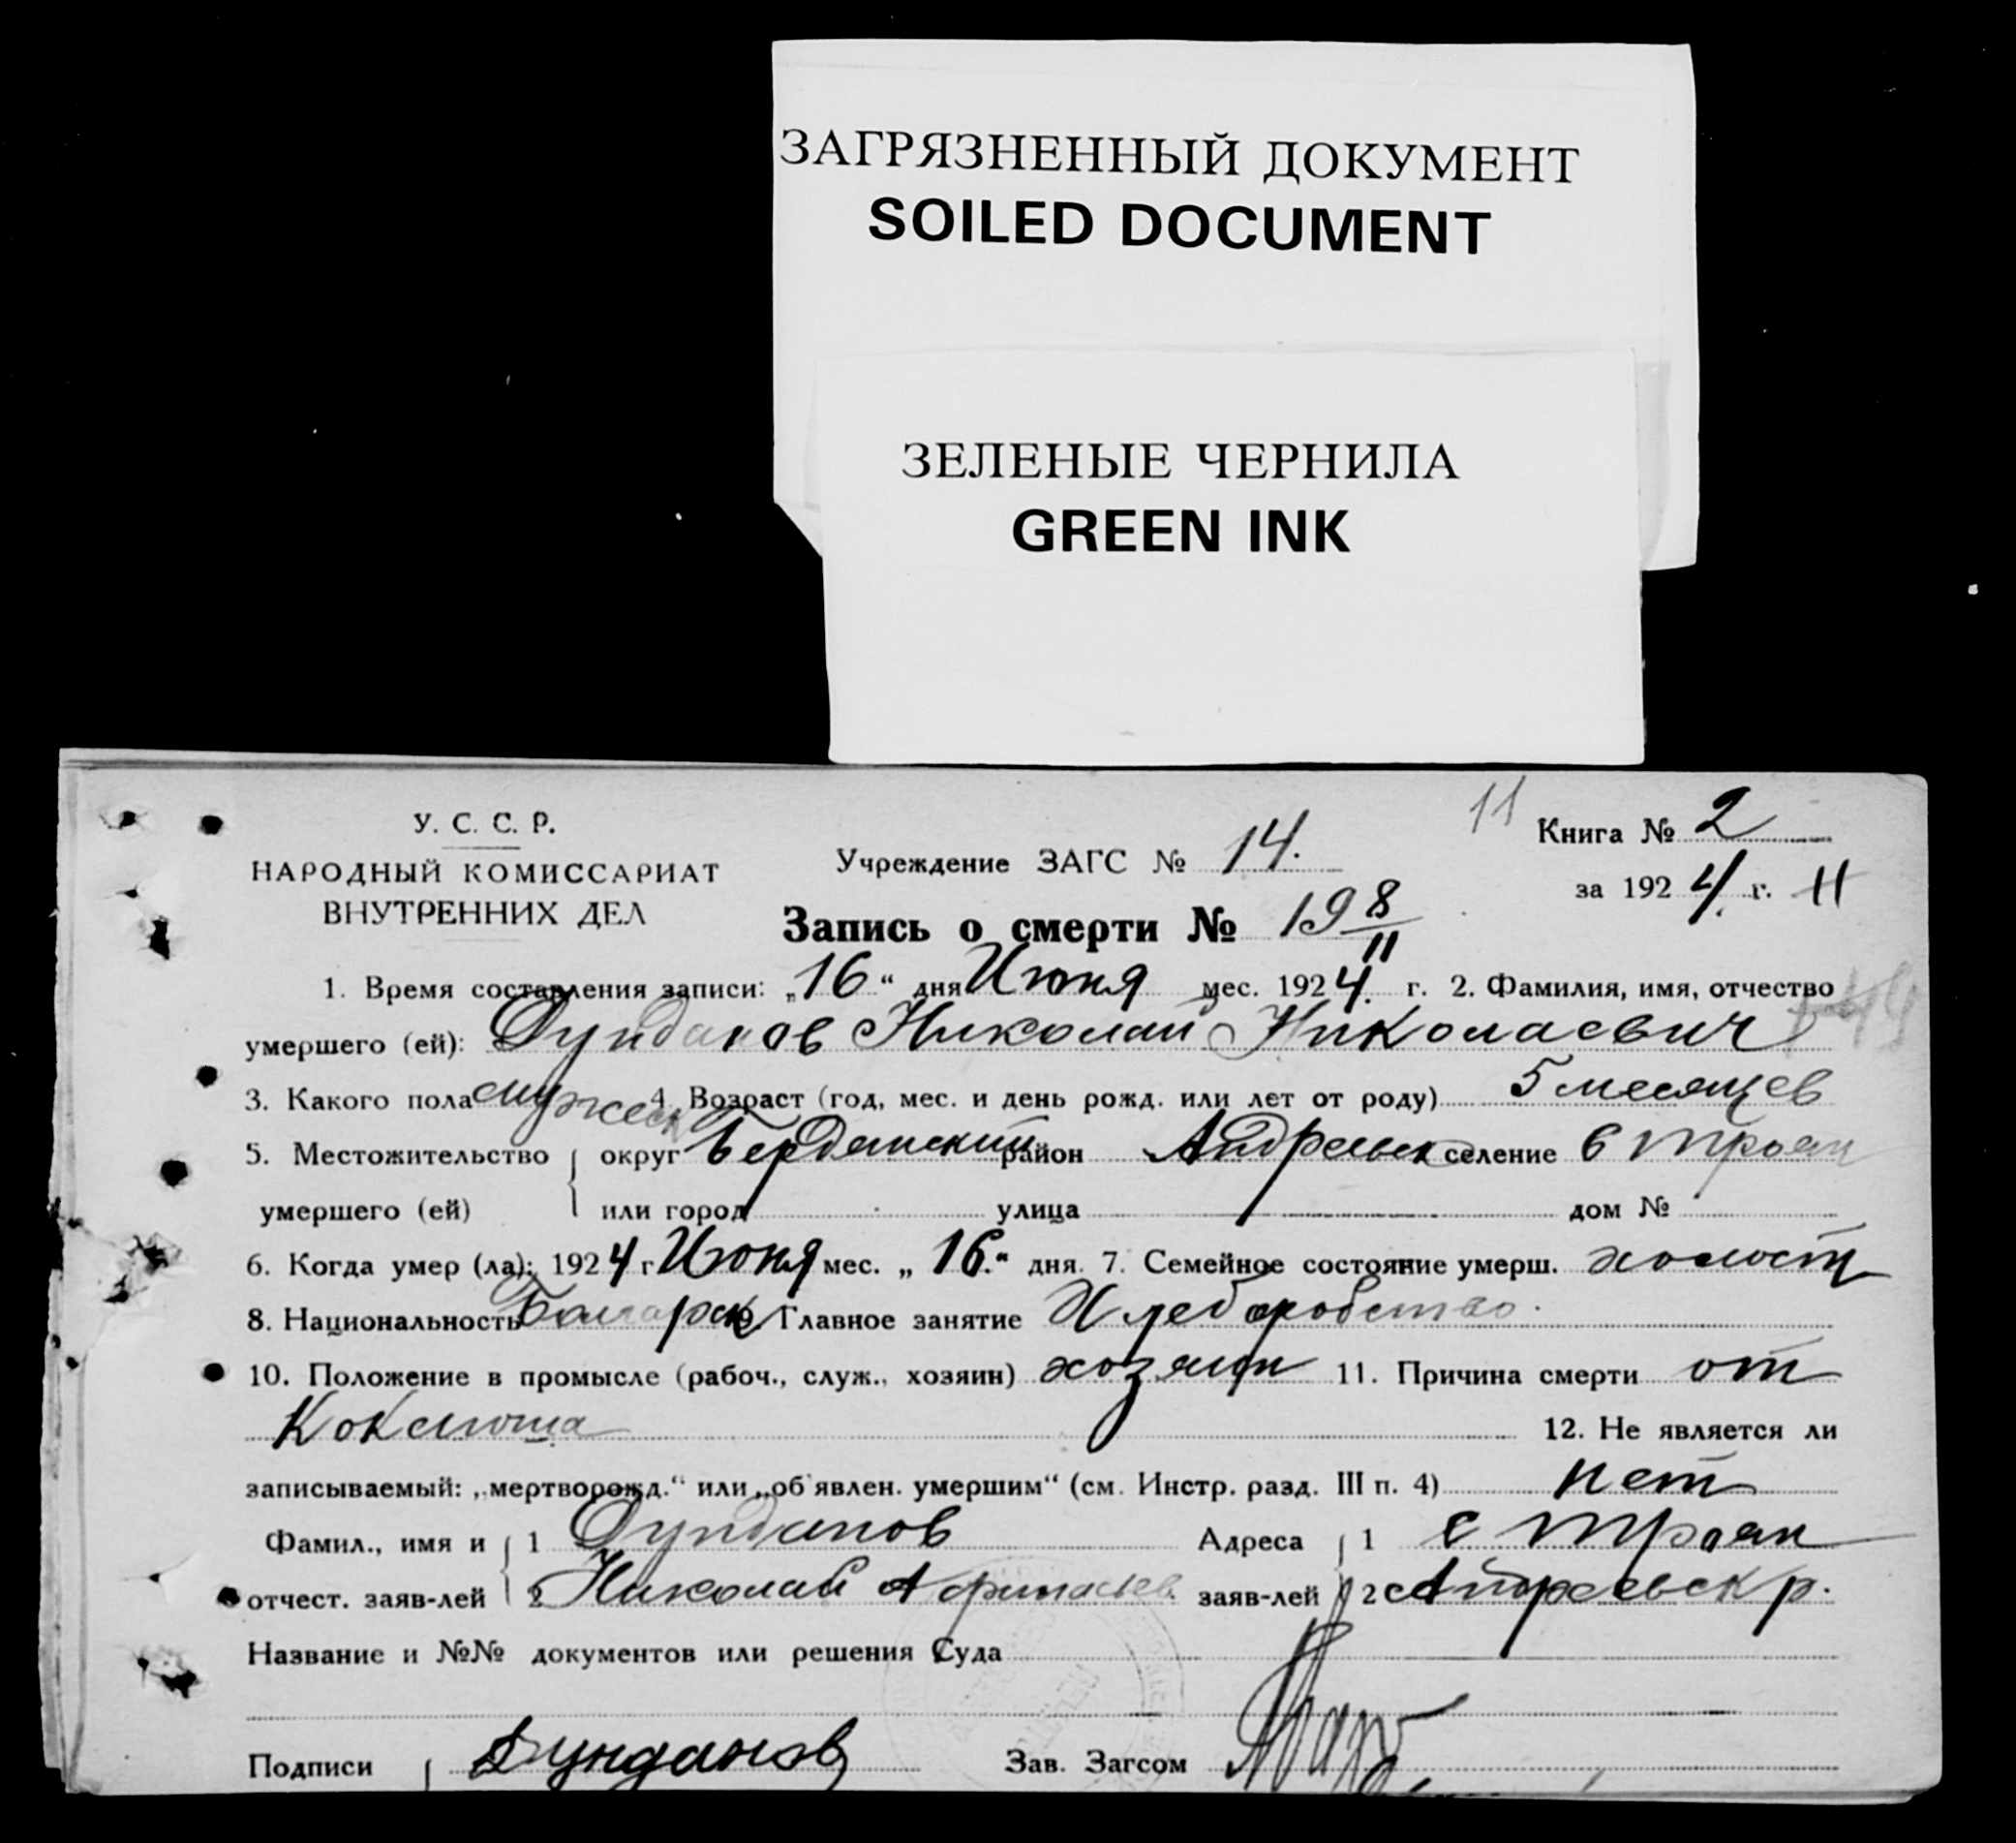 ЗАГРЯЗНЕННЫЙ ДОКУМЕНТ
SOILED DOCUMENT
ЗЕЛЕНЫЕ ЧЕРНИЛА
GREEN INK
У. С. С. Р.
НАРОДНЫЙ КОМИССАРИАТ
ВНУТРЕННИХ ДЕЛ
Учреждение ЗАГС № 14.
11 Книга № 2
за 1924 г. 11
Запись о смерти № 198/11
1. Время составления записи: „16“ дня Июня мес. 1924 г. 2. Фамилия, имя, отчество
умершего (ей): Дунданов Николай Николаевич
3. Какого пола мужеск 4. Возраст (год, мес. и день рожд. или лет от роду) 5 месяцев
5. Местожительство округ Бердянский район Андреевск селение с Троян
умершего (ей) или город улица дом №
6. Когда умер (ла): 1924 г Июня мес. „16.“ дня. 7. Семейное состояние умерш. холост
8. Национальность Болгарск 9. Главное занятие Хлеборобство.
10. Положение в промысле (рабоч., служ., хозяин) хозяин 11. Причина смерти от
Коклюша 12. Не является ли
записываемый: „мертворожд.“ или „об'явлен. умершим“ (см. Инстр. разд. III п. 4) нет
Фамил., имя и 1 Дунданов Адреса 1 с Троян
отчест. заяв-лей 2 Николай Афанасьев заяв-лей 2 Андреевск р.
Название и №№ документов или решения Суда
Подписи Дунданов Зав. Загсом